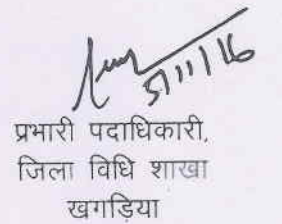 5/11/16
प्रभारी पदाधिकारी,
जिला विधि शाखा
खगड़िया